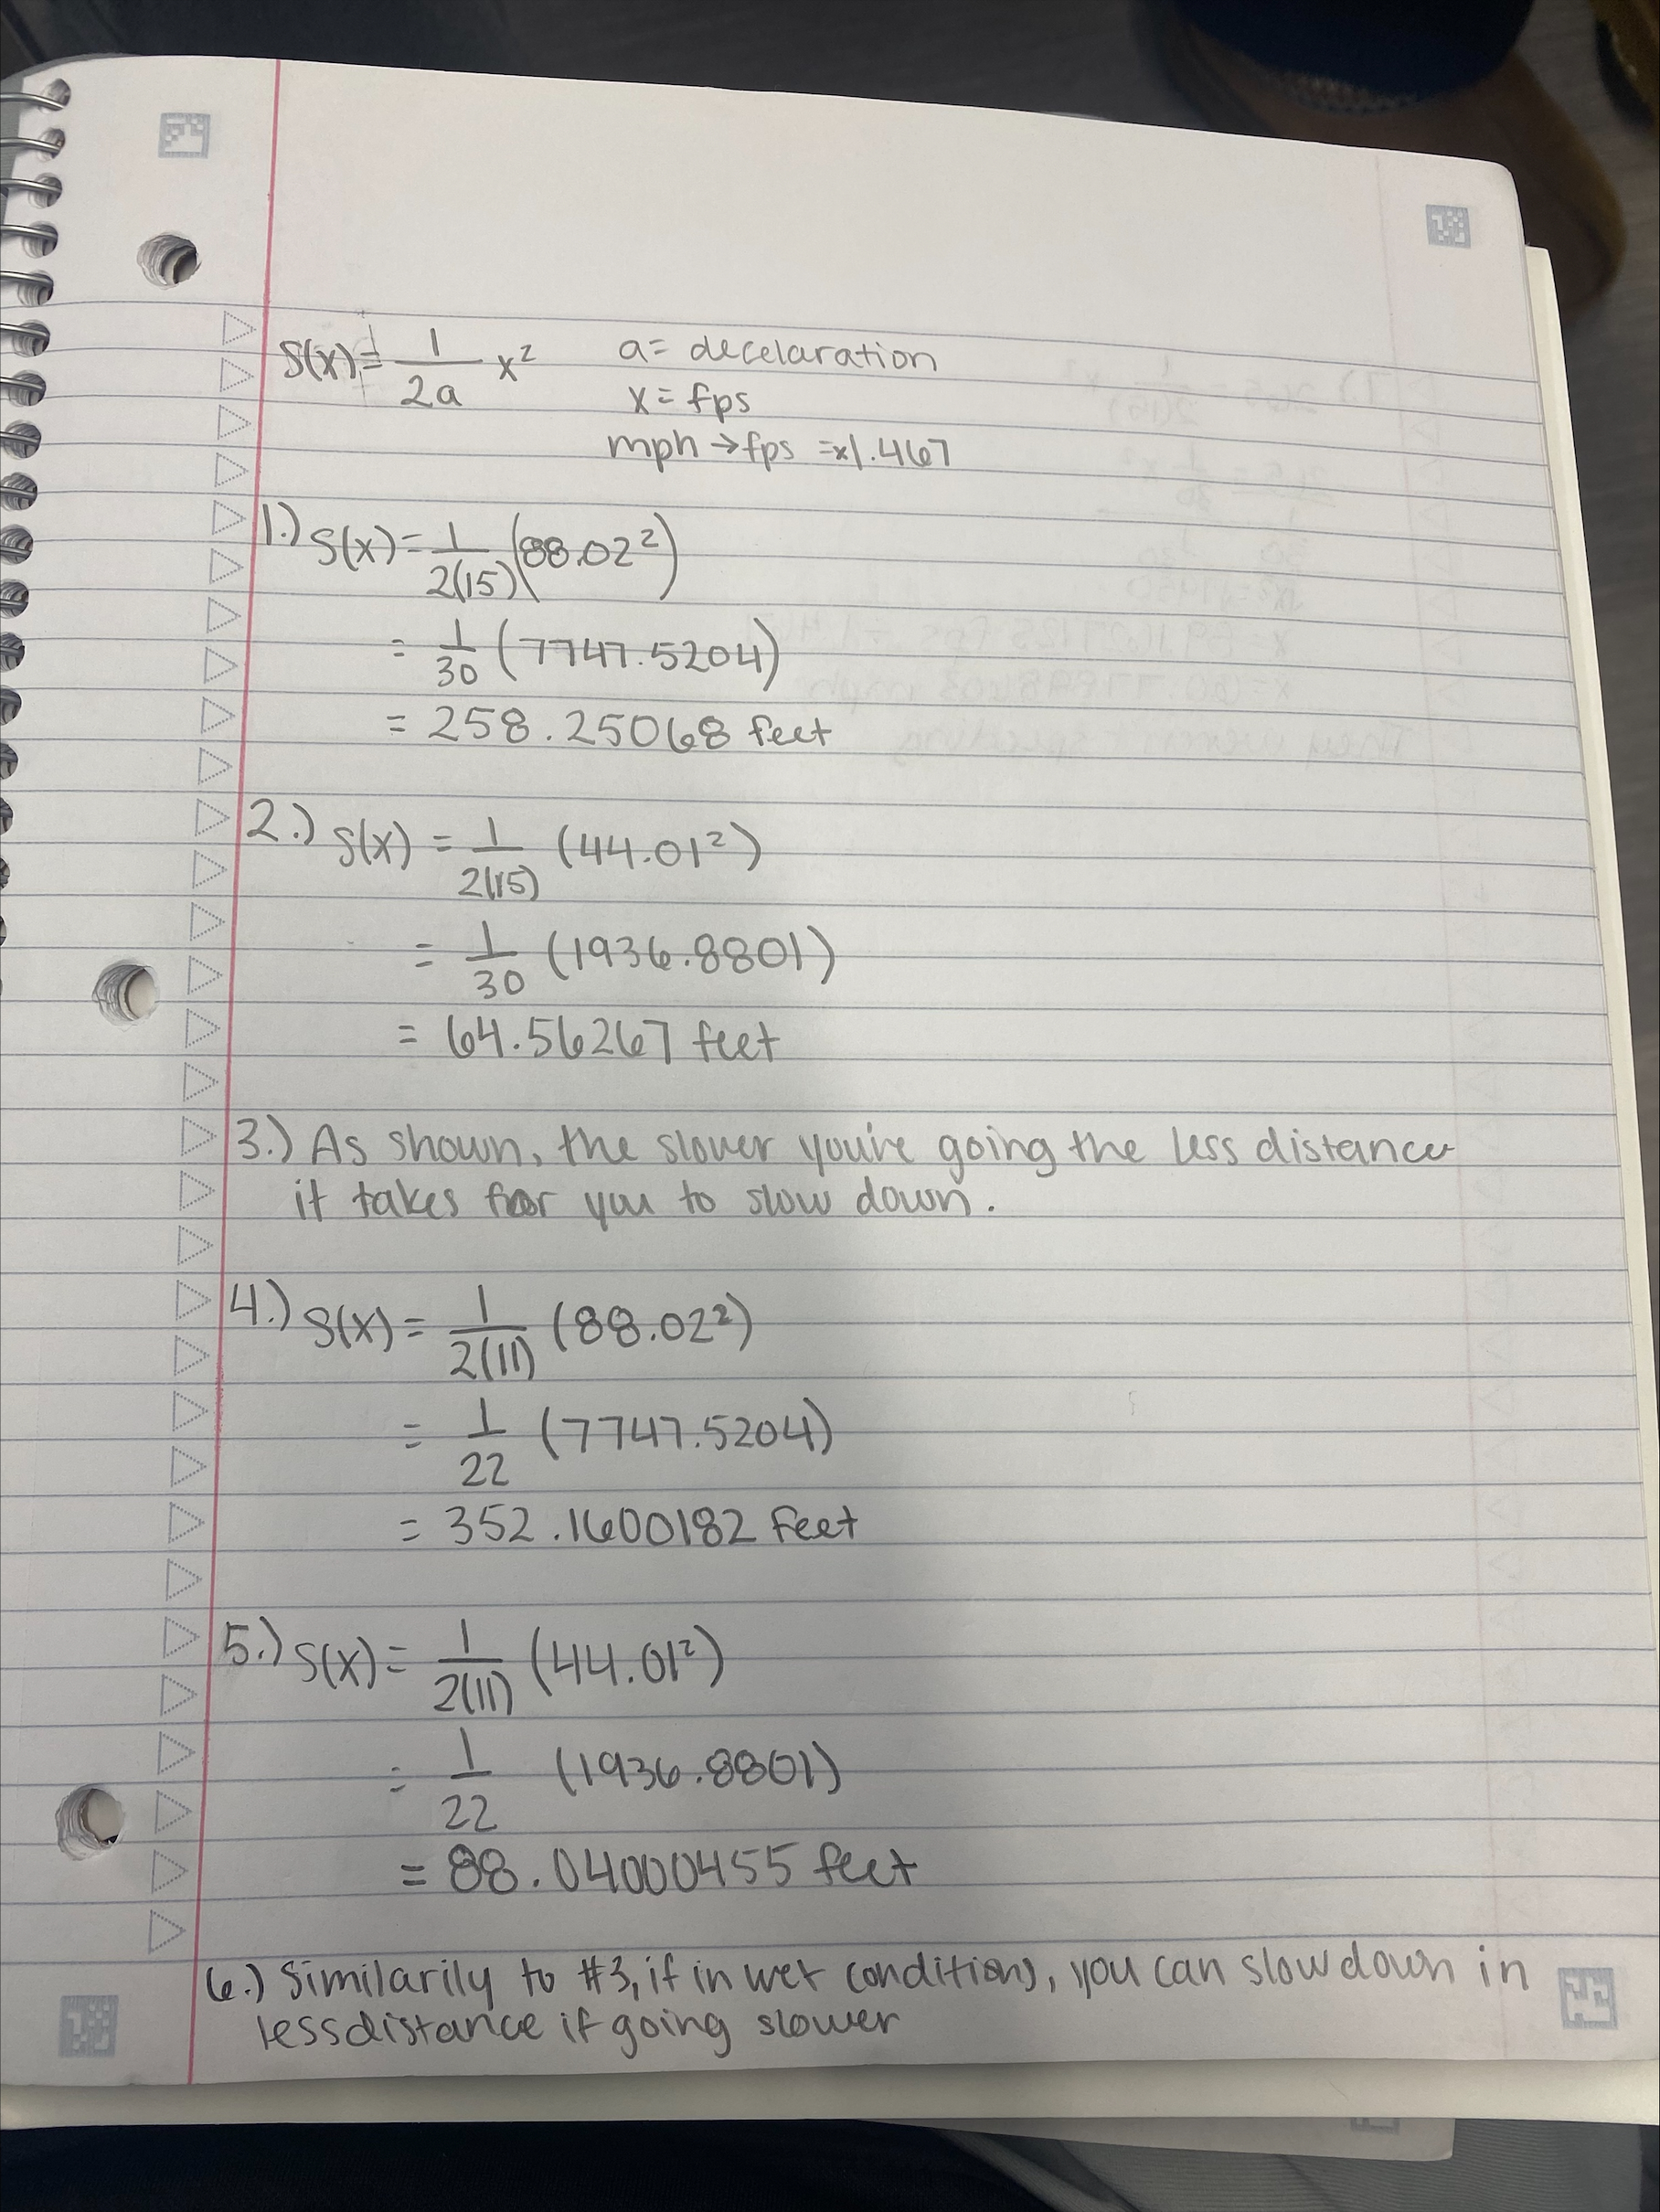 S(x)= 1/2a x² a= decelaration
x= fps
mph → fps =x1.467
1.) S(x)= 1/2(15) (88.02²)
= 1/30 (7747.5204)
= 258.25068 feet
2.) S(x) = 1/2(15) (44.01²)
= 1/30 (1936.8801)
= 64.56267 feet
3.) As shown, the slower you're going the less distance
it takes for you to slow down.
4.) S(x)= 1/2(11) (88.02²)
= 1/22 (7747.5204)
= 352.1600182 feet
5.) S(x)= 1/2(11) (44.01²)
= 1/22 (1936.8801)
= 88.04000455 feet
6.) Similarily to #3, if in wet conditions, you can slow down in
less distance if going slower